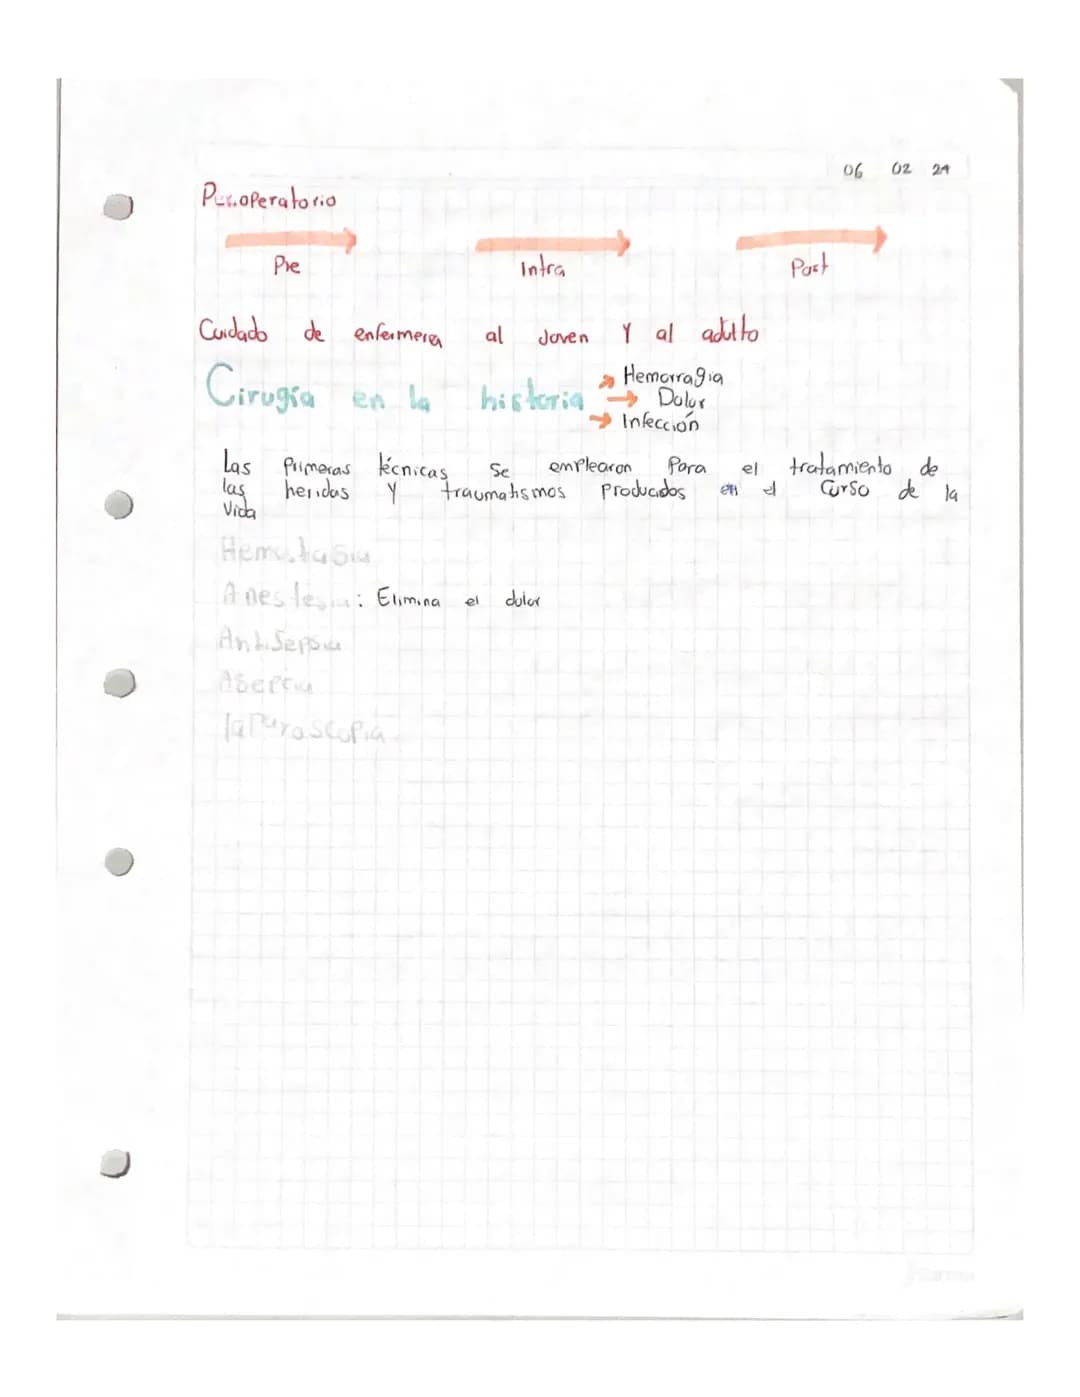 06 02 24
Perioperatorio
Pre Intra Post
Cuidado de enfermera al Joven Y al adulto
Cirugía en la historia
Hemorragia
Dolor
Infección
Las Primeras técnicas se emplearon Para el tratamiento de
las heridas y traumatismos Producidos en el Curso de la
Vida
Hemostasia
Anestesia: Elimina el dolor
Antisepsia
Asepcia
laParoscopia